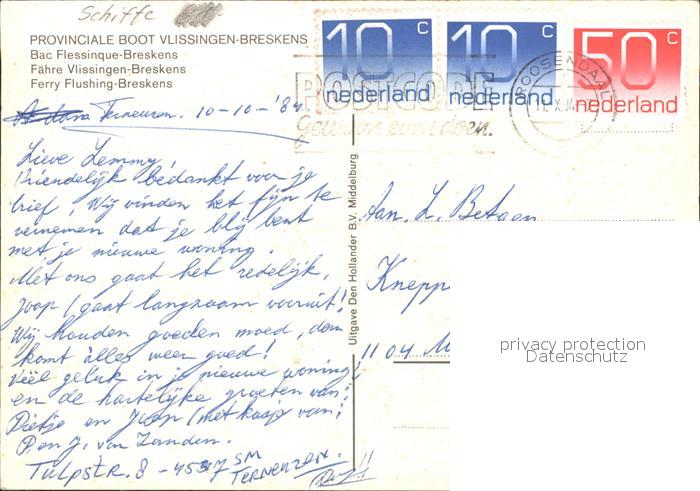 Schiffe
PROVINCIALE BOOT VLISSINGEN-BRESKENS
Bac Flessinque-Breskens
Fähre Vlissingen-Breskens
Ferry Flushing-Breskens
10 c
nederland
10 c
nederland
50 c
nederland
POSTCODE
Gewoon even doen.
ROOSENDAAL
Terneuzen. 10-10-'84
Lieve Lemmy,
Vriendelijk bedankt voor je
brief, Wij vinden het fijn te
vernemen dat je blij bent
met je nieuwe woning.
Met ons gaat het redelijk,
Joop gaat langzaam vooruit!
Wij houden goeden moed, dan
komt alles weer goed!
Veel geluk in je nieuwe woning!
en de hartelijke groeten van:
Pietje en Joop
P. en J. van Zanden.
Tulpstr. 8 - 4537 SM
TERNEUZEN.
Uitgave Den Hollander B.V. Middelburg
Aan. L. Betaen
Knepp
1104 M
privacy protection
Datenschutz